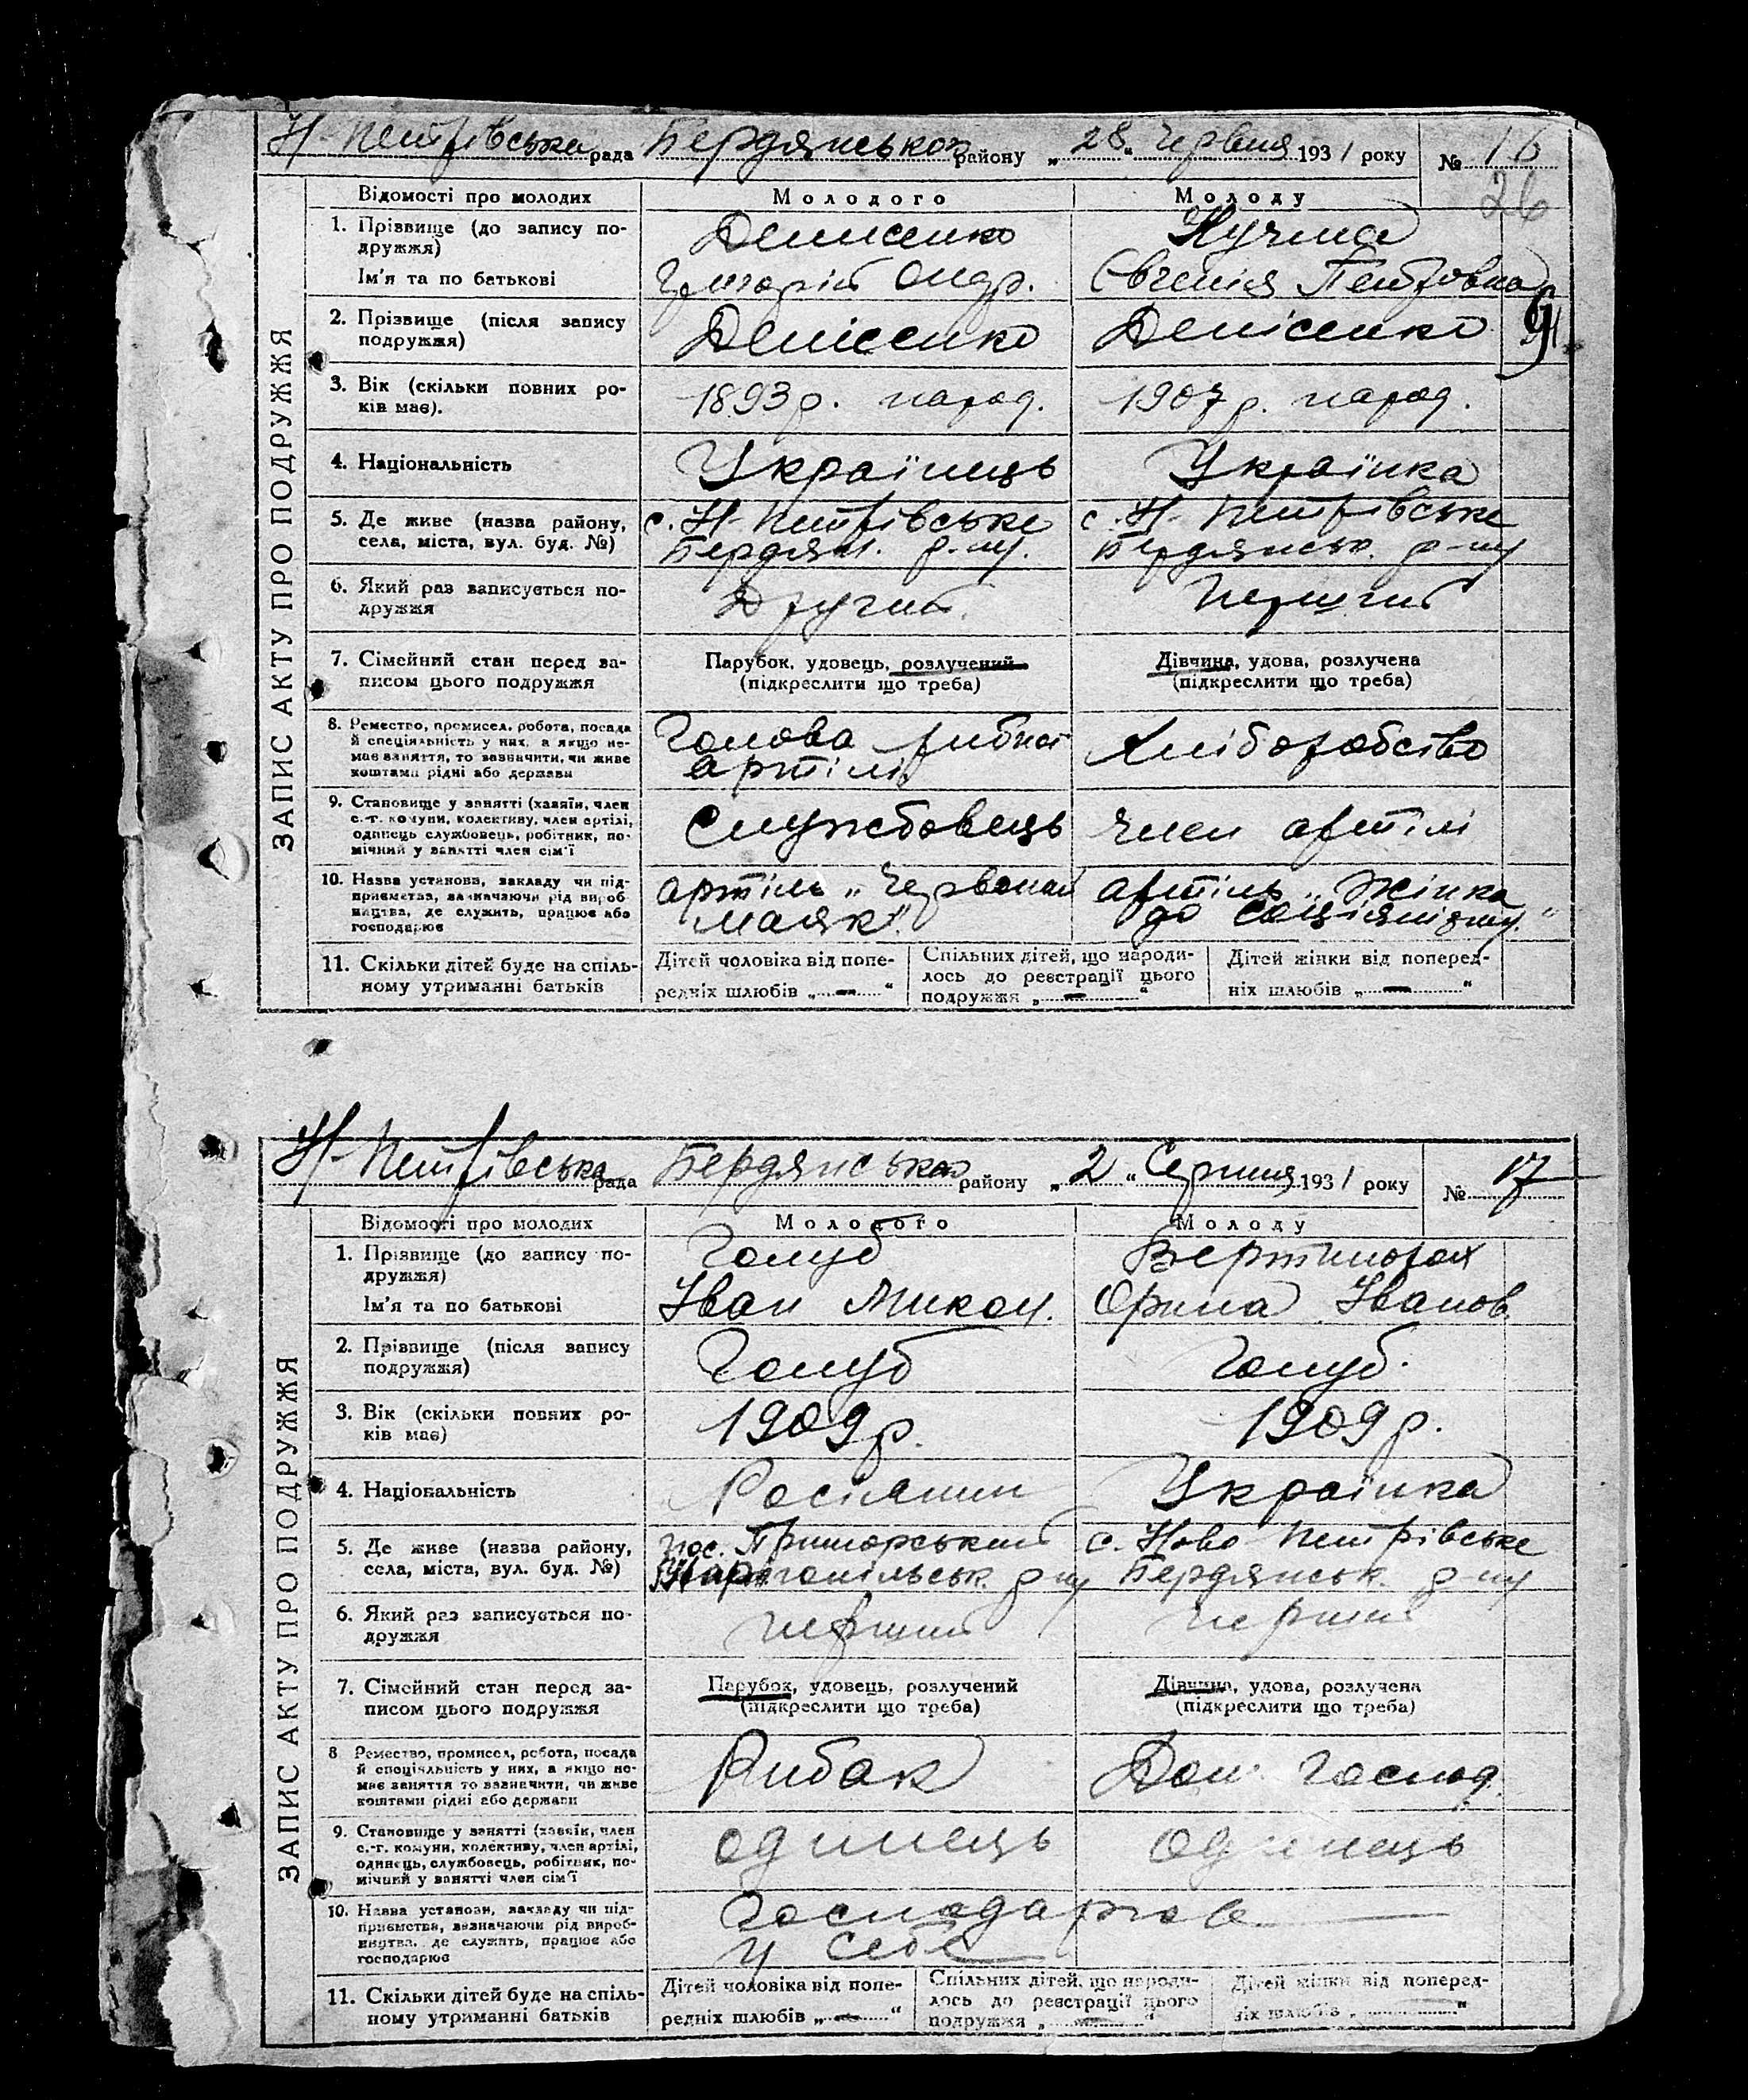 Н-Петрівська рада Бердянського району „28“ Червня 1931 року № 16
26
Відомості про молодих Молодого Молоду
1. Прізвище (до запису по- Денисенко Кучма
дружжя)
Ім'я та по батькові Григорій Андр. Євгенія Петровна
2. Прізвище (після запису Денісенко Денісенко
подружжя)
3. Вік (скільки повних ро- 1893 р. народ. 1907 р. народ.
ків має).
4. Національність Українець Українка
5. Де живе (назва району, с. Н-Петрівське с. Н-Петрівське
села, міста, вул. буд. №) Бердян. р-ну. Бердянськ. р-ну
6. Який раз записується по- Другий. Перший
дружжя
7. Сімейний стан перед за- Парубок, удовець, розлучений Дівчина, удова, розлучена
писом цього подружжя (підкреслити що треба) (підкреслити що треба)
8. Ремество, промисел, робота, посада Голова рибної Хліборобство
й спеціяльність у них, а якщо не- артілі
має заняття, то зазначити, чи живе
коштами рідні або держави
9. Становище у занятті (хазяїн, член Службовець член артілі
с.-г. комуни, колективу, член артілі,
одинець службовець, робітник, по-
мічний у занятті член сім'ї
10. Назва установи, закладу чи під- артіль „Червоний артіль „Жінка
приємства, зазначаючи рід вироб- маяк“. до соціялізму.“
ництва, де служить, працює або
господарює
11. Скільки дітей буде на спіль- Дітей чоловіка від попе- Спільних дітей, що народи- Дітей жінки від поперед-
ному утриманні батьків редніх шлюбів „—“ лось до реєстрації цього ніх шлюбів „—“
подружжя „—“
ЗАПИС АКТУ ПРО ПОДРУЖЖЯ
Н-Петрівська рада Бердянського району „2“ Серпня 1931 року № 17
Відомості про молодих Молодого Молоду
1. Прізвище (до запису по- Голуб Вертипорох
дружжя)
Ім'я та по батькові Іван Микол. Орина Іванов.
2. Прізвище (після запису Голуб Голуб.
подружжя)
3. Вік (скільки повних ро- 1909 р. 1909 р.
ків має)
4. Національність Росіянин Українка
5. Де живе (назва району, пос. Приморський с. Ново Петрівське
села, міста, вул. буд. №) р-ну Бердянськ. р-ну
6. Який раз записується по- перший перший
дружжя
7. Сімейний стан перед за- Парубок, удовець, розлучений Дівчина, удова, розлучена
писом цього подружжя (підкреслити що треба) (підкреслити що треба)
8 Ремество, промисел, робота, посада Рибак Дом. господ.
й спеціяльність у них, а якщо не-
має заняття то зазначити, чи живе
коштами рідні або держави
9. Становище у занятті (хазяїн, член одинець одинець
с.-г. комуни, колективу, член артілі,
одинець, службовець, робітник, по-
мічний у занятті член сім'ї
10. Назва установи, закладу чи під- Господарює —
приємства, зазначаючи рід вироб- у себе —
ництва, де служить, працює або
господарює
11. Скільки дітей буде на спіль- Дітей чоловіка від попе- Спільних дітей, що народи- Дітей жінки від поперед-
ному утриманні батьків редніх шлюбів „—“ лось до реєстрації цього ніх шлюбів „“
подружжя „—“
ЗАПИС АКТУ ПРО ПОДРУЖЖЯ